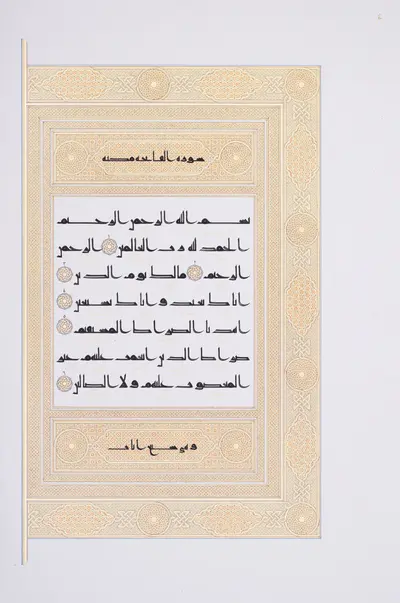 سورة الفاتحة مكية
بسم الله الرحمن الرحيم
الحمد لله رب العالمين الرحمن
الرحيم مالك يوم الدين
اياك نعبد و اياك نستعين
اهدنا الصراط المستقيم
صراط الذين انعمت عليهم غير
المغضوب عليهم ولا الضالين
وهي سبع ايات